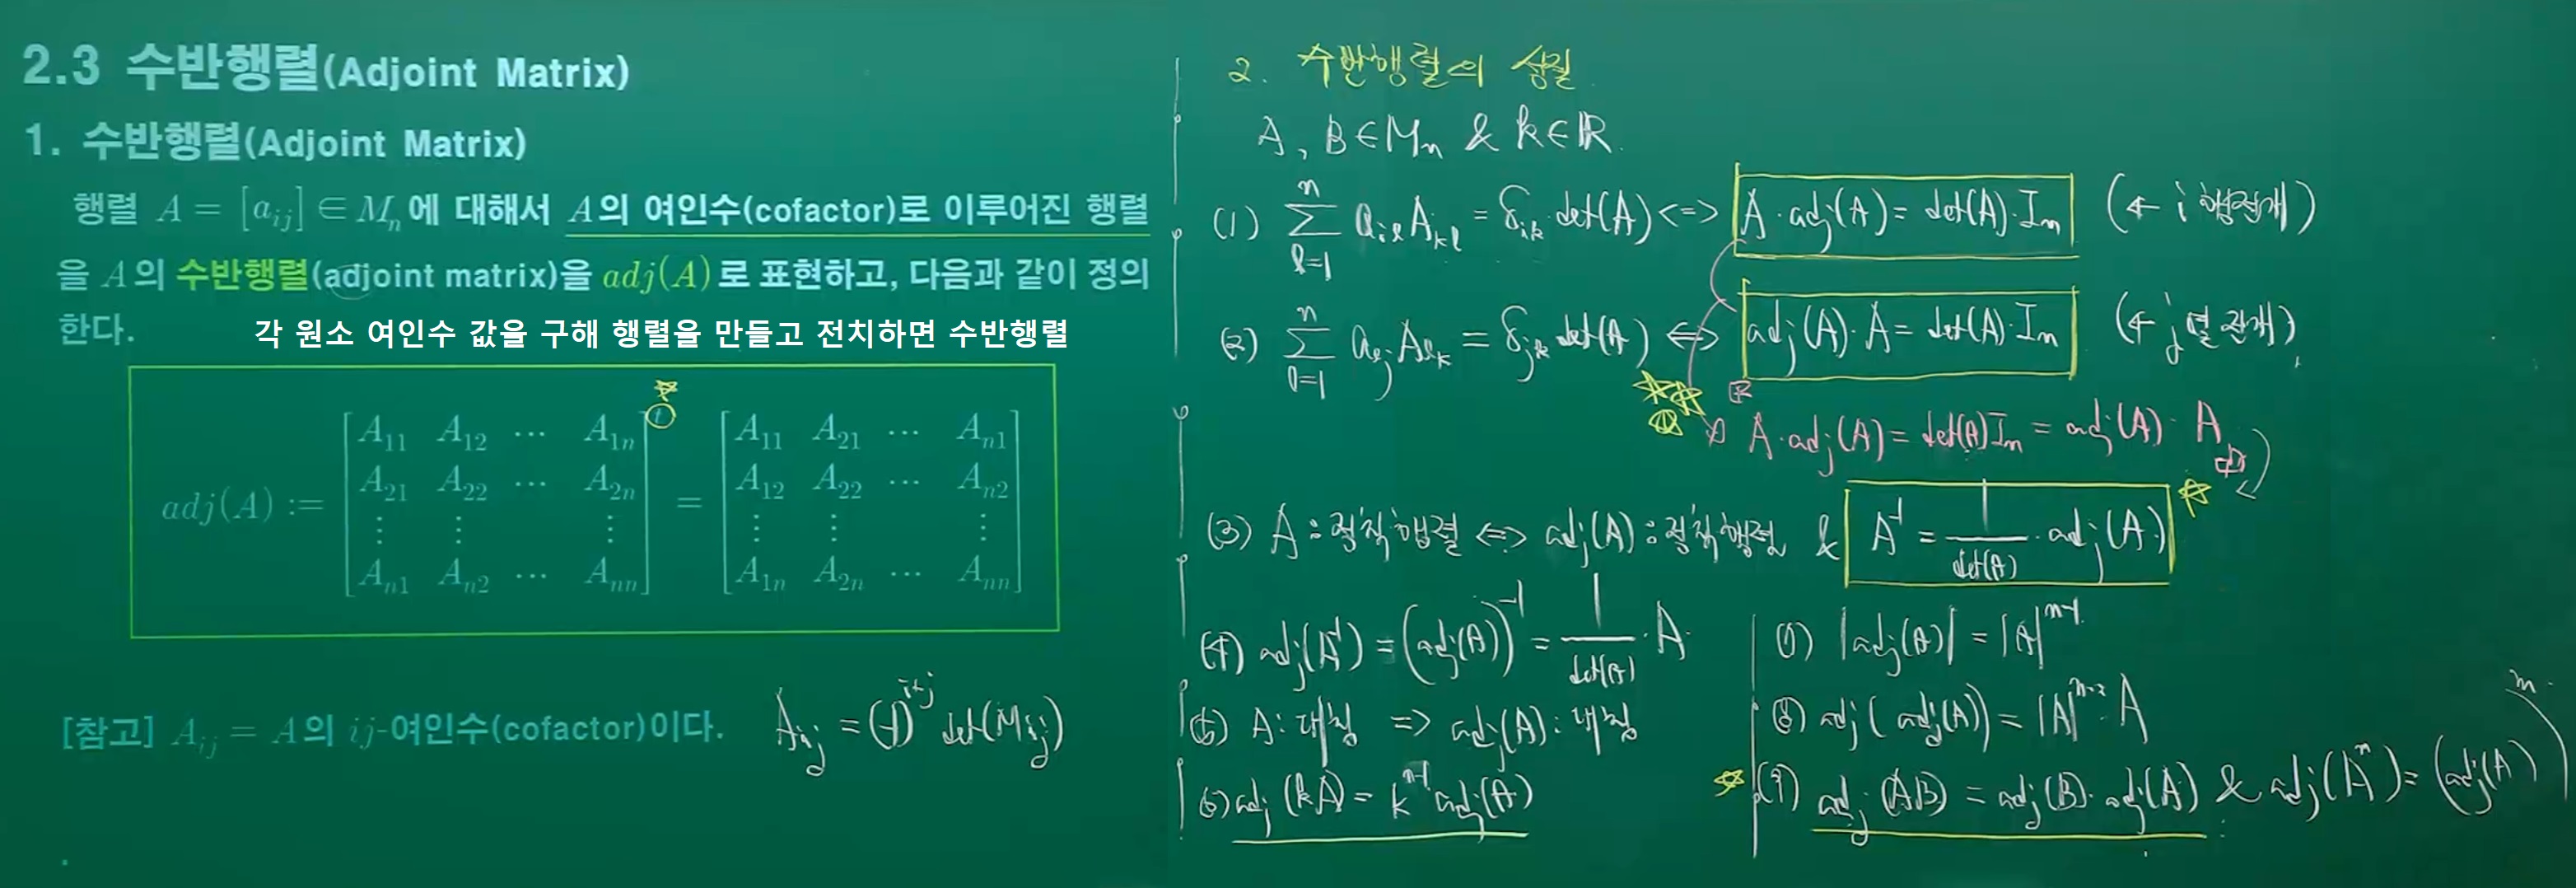 2.3 수반행렬(Adjoint Matrix)
1. 수반행렬(Adjoint Matrix)
행렬 A = [a_{ij}] ∈ M_n에 대해서 A의 여인수(cofactor)로 이루어진 행렬
을 A의 수반행렬(adjoint matrix)을 adj(A)로 표현하고, 다음과 같이 정의
한다.
각 원소 여인수 값을 구해 행렬을 만들고 전치하면 수반행렬
adj(A) := [A_{11} A_{12} ⋯ A_{1n}
A_{21} A_{22} ⋯ A_{2n}
⋮ ⋮ ⋮
A_{n1} A_{n2} ⋯ A_{nn}]^t
= [A_{11} A_{21} ⋯ A_{n1}
A_{12} A_{22} ⋯ A_{n2}
⋮ ⋮ ⋮
A_{1n} A_{2n} ⋯ A_{nn}]
[참고] A_{ij} = A의 ij-여인수(cofactor)이다.
A_{ij} = (-1)^{i+j} det(M_{ij})
2. 수반행렬의 성질
A, B ∈ M_n & k ∈ ℝ.
(1) ∑_{l=1}^{n} a_{il} A_{kl} = δ_{ik} det(A) <=> A·adj(A) = det(A)·I_n (← i 행전개)
(2) ∑_{l=1}^{n} a_{lj} A_{lk} = δ_{jk} det(A) <=> adj(A)·A = det(A)·I_n (← j 열전개)
A·adj(A) = det(A) I_n = adj(A)·A
(3) A : 정칙행렬 <=> adj(A) : 정칙행렬 & A^{-1} = 1/det(A) · adj(A)
(4) adj(A^{-1}) = (adj(A))^{-1} = 1/det(A) · A.
(5) A : 대칭 => adj(A) : 대칭
(6) adj(kA) = k^{n-1} adj(A)
(7) |adj(A)| = |A|^{n-1}.
(8) adj(adj(A)) = |A|^{n-2} A
(9) adj(AB) = adj(B)·adj(A) & adj(A^m) = (adj(A))^m